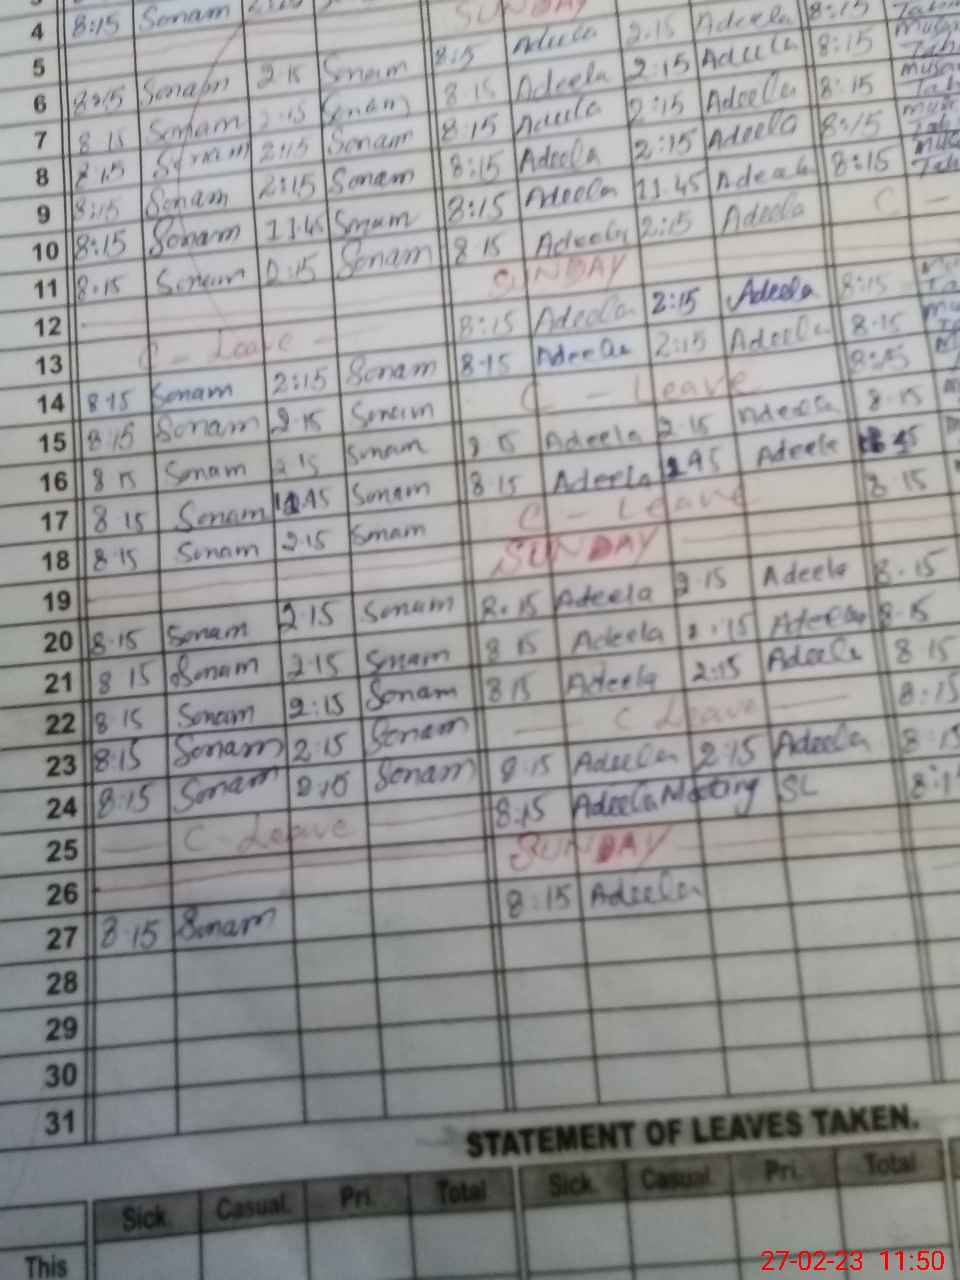 4 8:15 Sonam SUNDAY
5 8:15 Adeela 2:15 Adeela 8:15
6 8:15 Sonam 2:15 Sonam 8:15 Adeela 2:15 Adeela 8:15
7 8:15 Sonam 2:15 Sonam 8:15 Adeela 2:15 Adeela 8:15
8 8:15 Sonam 2:15 Sonam 8:15 Adeela 2:15 Adeela 8:15
9 8:15 Sonam 2:15 Sonam 8:15 Adeela 11.45 Adeela 8:15
10 8:15 Sonam 11.45 Sonam 8:15 Adeela 2:15 Adeela C -
11 8:15 Sonam 2:15 Sonam SUNDAY
12 8:15 Adeela 2:15 Adeela 8:15
13 C - Leave - 8:15 Adeela 2:15 Adeela 8:15
14 8:15 Sonam 2:15 Sonam C - Leave 8:15
15 8:15 Sonam 2:15 Sonam 8:15 Adeela 2:15 Adeela 8:15
16 8:15 Sonam 2:15 Sonam 8:15 Adeela Adeela
17 8:15 Sonam Sonam C - Leave 8:15
18 8:15 Sonam 2:15 Sonam SUNDAY
19 8:15 Adeela 2:15 Adeela 8:15
20 8:15 Sonam 2:15 Sonam 8:15 Adeela 2:15 Adeela 8:15
21 8:15 Sonam 2:15 Sonam 8:15 Adeela 2:15 Adeela 8:15
22 8:15 Sonam 2:15 Sonam C Leave 8:15
23 8:15 Sonam 2:15 Sonam 8:15 Adeela 2:15 Adeela 8:15
24 8:15 Sonam 2:15 Sonam 8:15 Adeela Meeting SL
25 C - Leave SUNDAY
26 8:15 Adeela
27 8:15 Sonam
28
29
30
31
STATEMENT OF LEAVES TAKEN.
Sick. Casual. Pri. Total Sick. Casual. Pri. Total
This
27-02-23 11:50